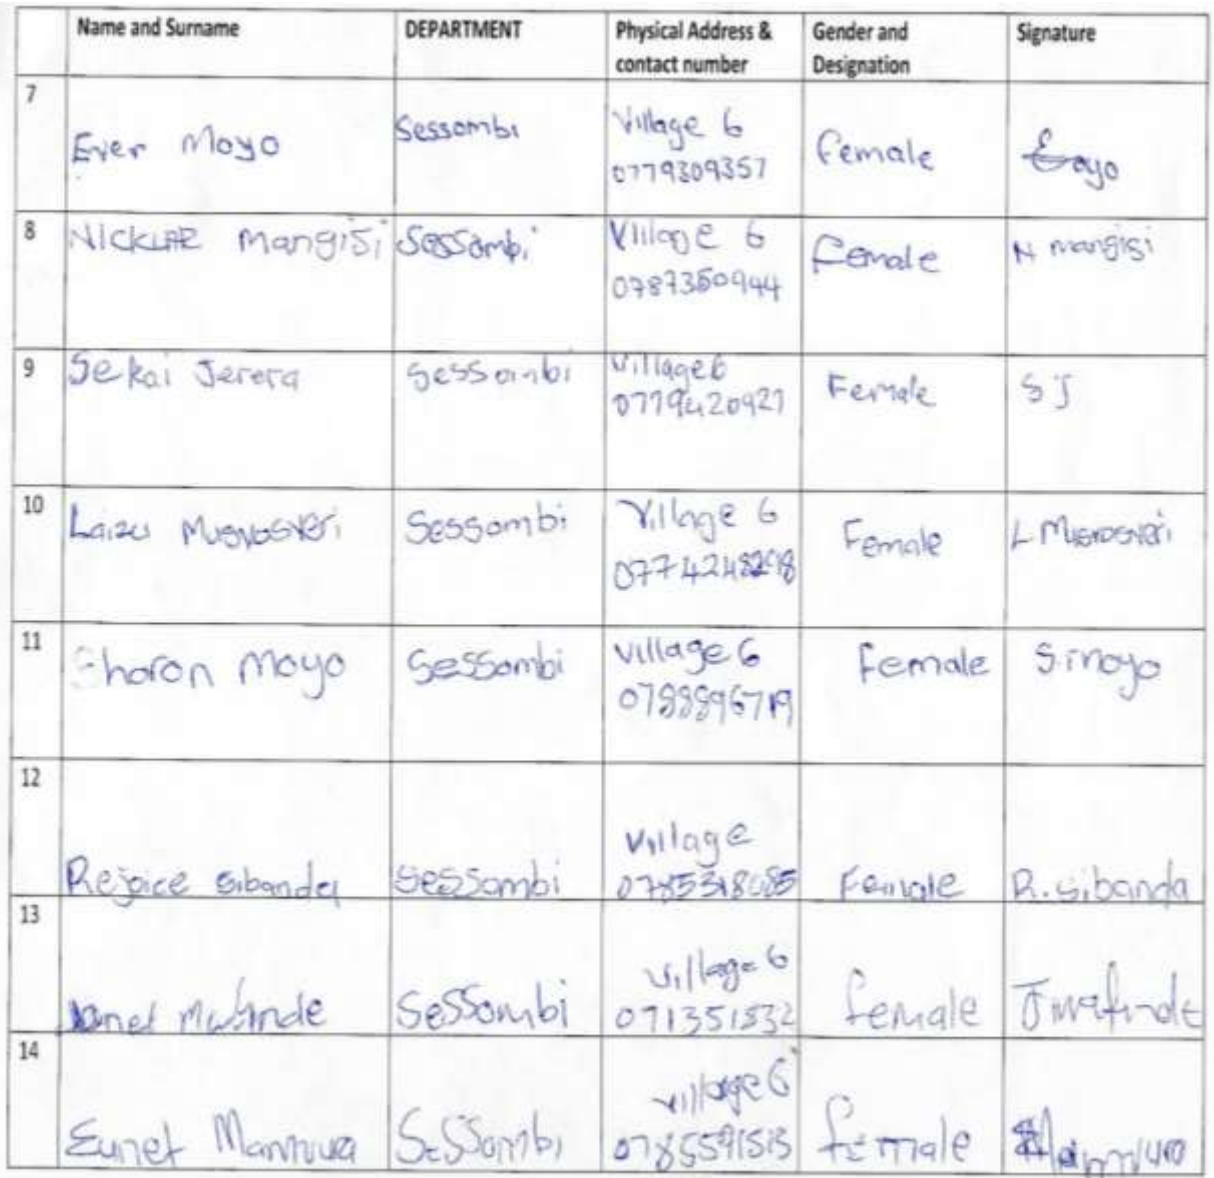 Name and Surname DEPARTMENT Physical Address & contact number Gender and Designation Signature
7 Ever Moyo Sessombi Village 6 0779309357 female Eoyo
8 Mangisi Sessombi Village 6 0787350944 Female N mangisi
9 Sekai Jerera Sessombi Village 6 0779420927 Female S J
10 Sessombi Village 6 Female L
11 Sharon Moyo Sessombi Village 6 Female S. moyo
12 Rejoice Sibanda Sessombi Village Female R. Sibanda
13 Sessombi Village 6 female
14 Eunet Sessombi Village 6 0785591513 female